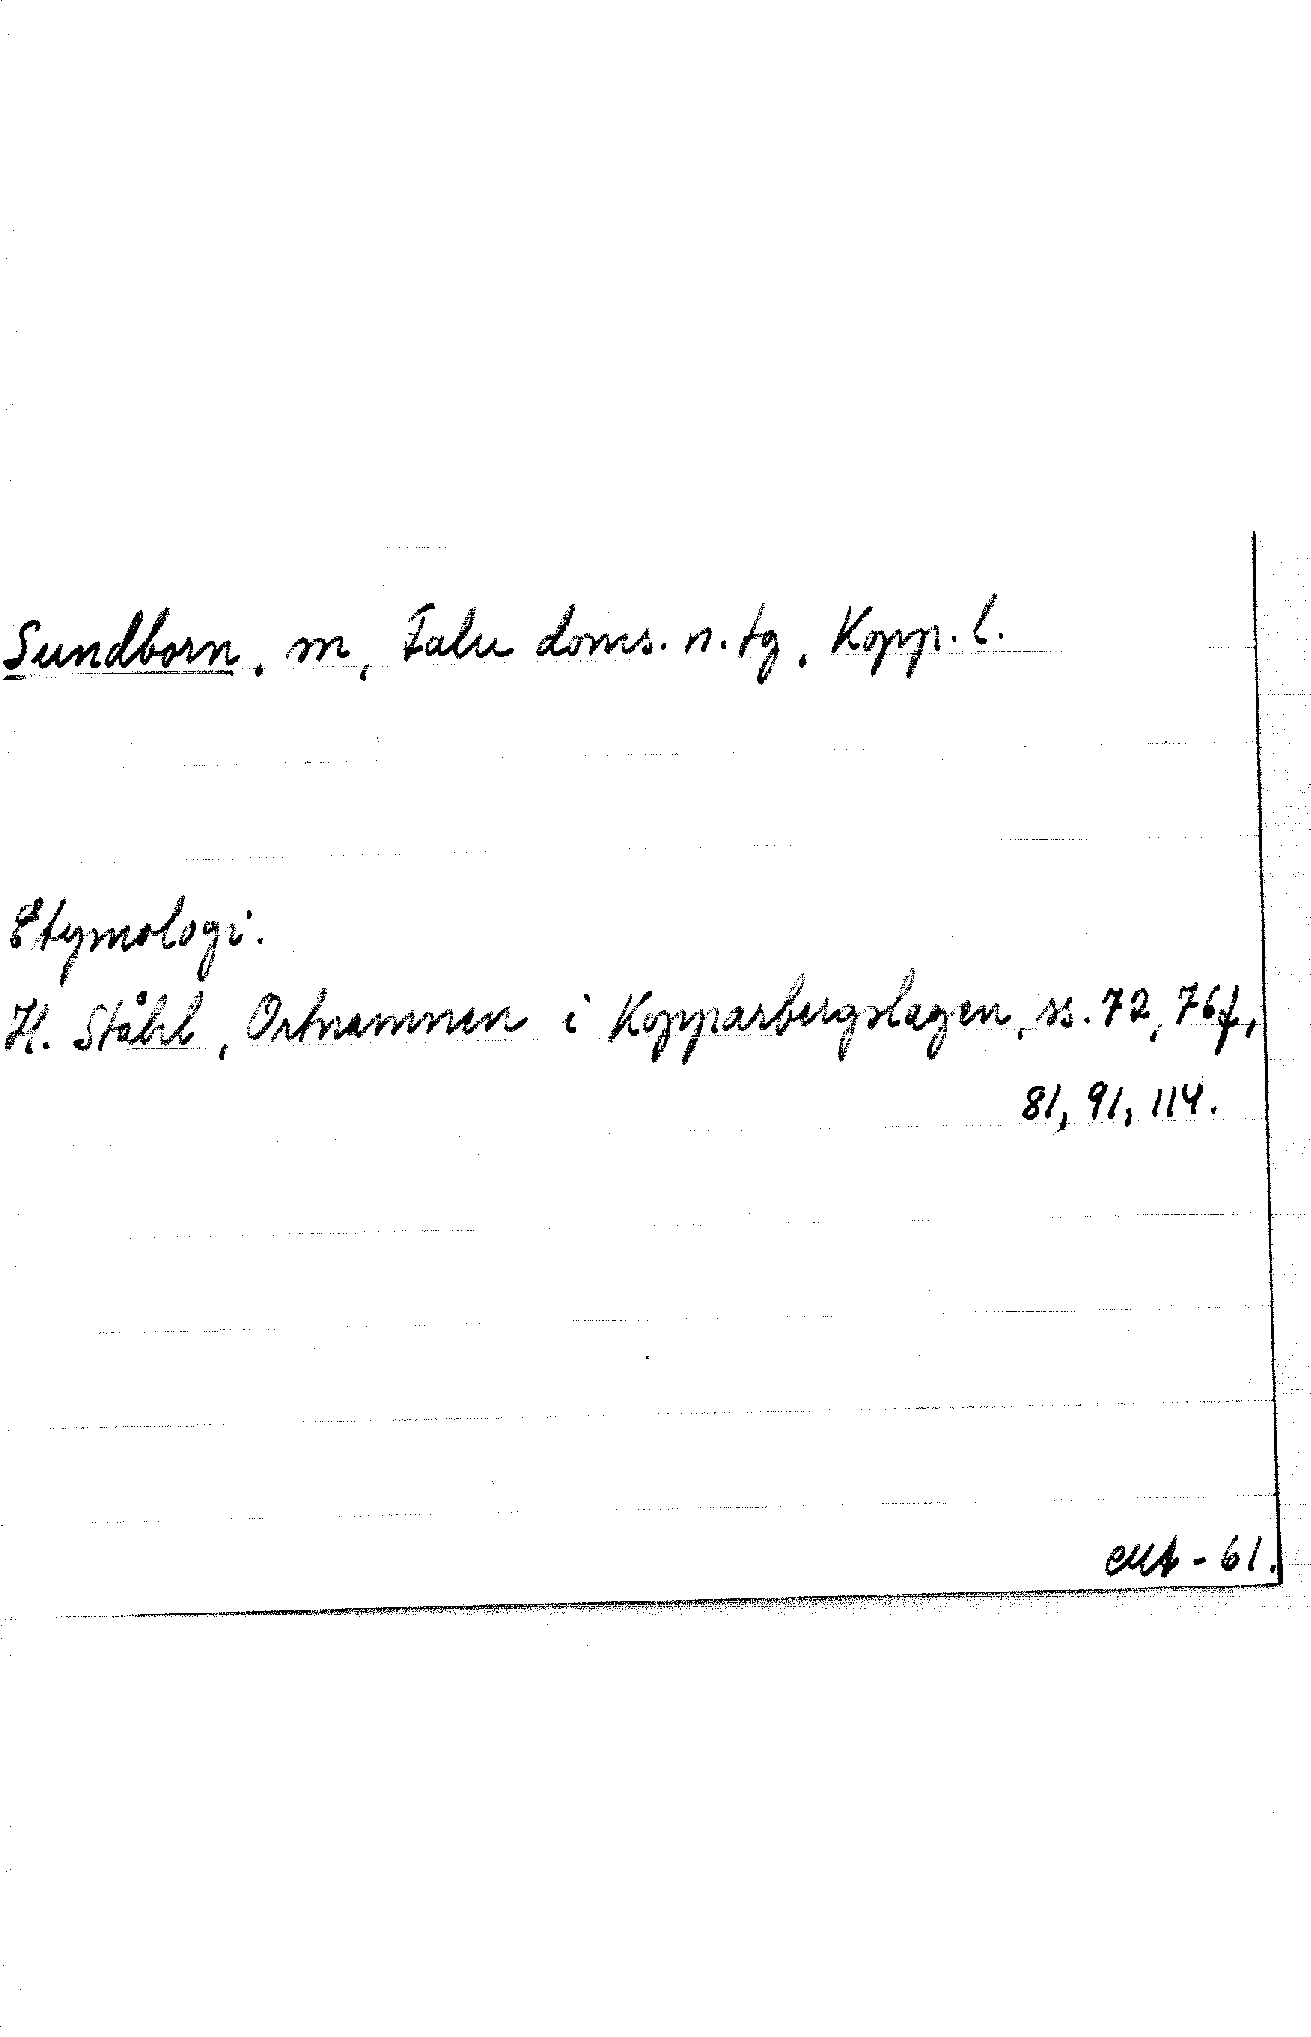 Sundborn, sn, Falu doms. n. tg, Kopp. l.
Etymologi.
H. Ståhl, Ortnamnen i Kopparbergslagen, ss. 72, 76f,
81, 91, 114.
- 61.